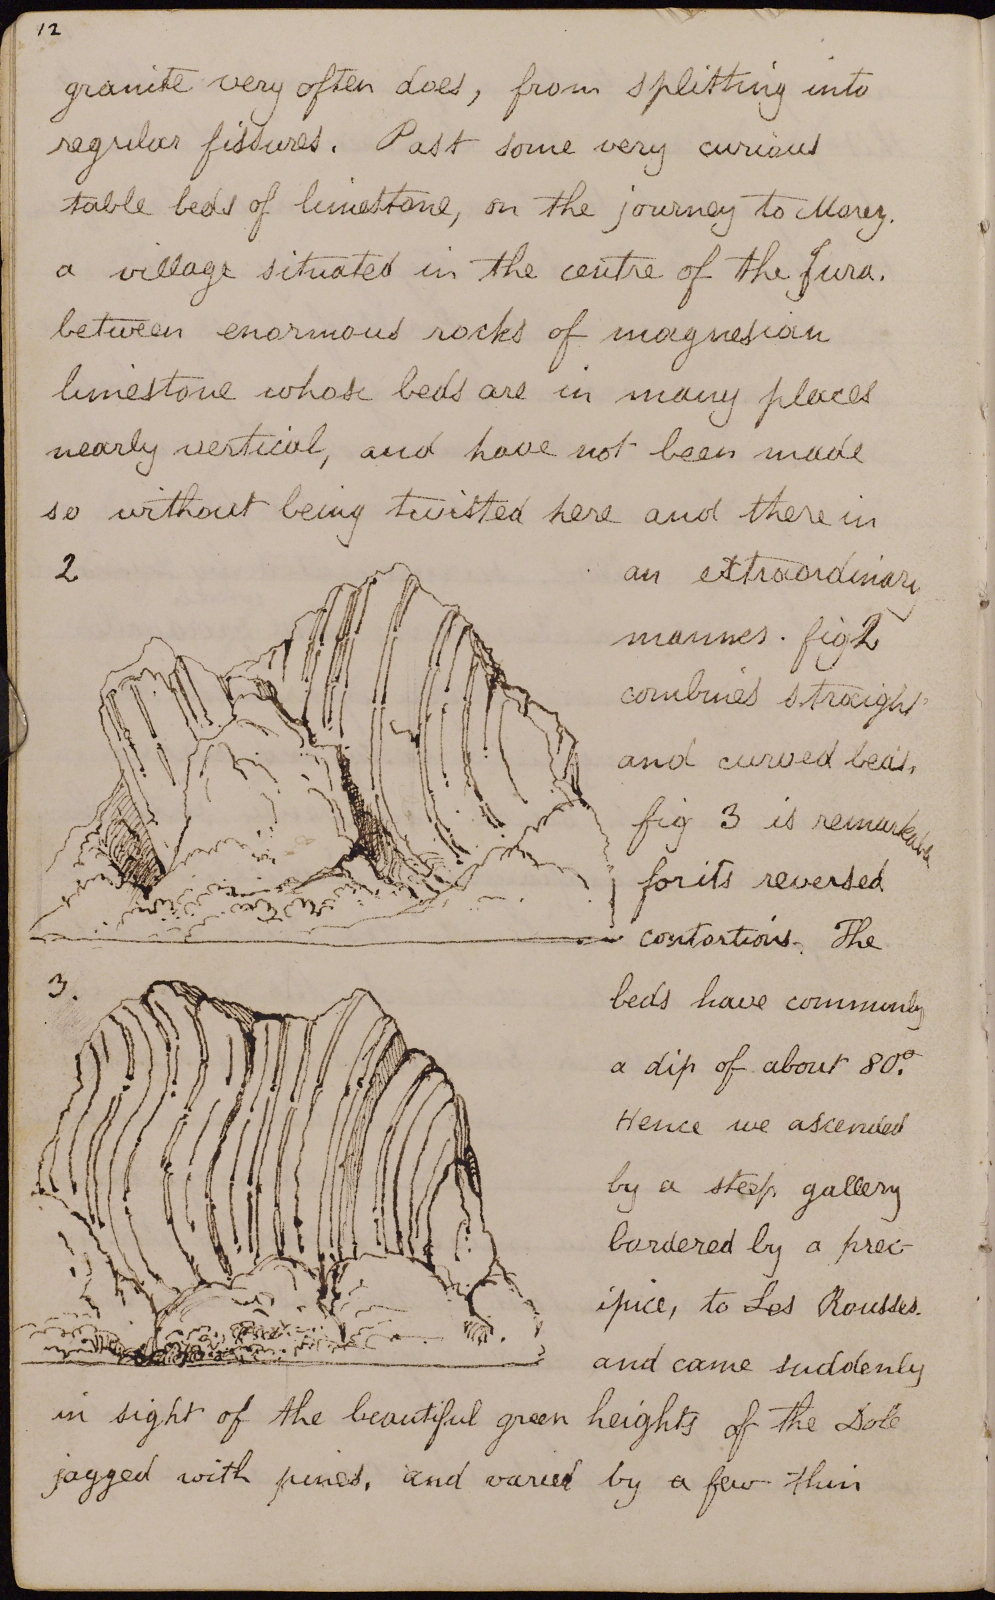 12
granite very often does, from splitting into
regular fissures. Past some very curious
table beds of limestone, on the journey to Morez.
a village situated in the centre of the Jura.
between enormous rocks of magnesian
limestone whose beds are in many places
nearly vertical, and have not been made
so without being twisted here and there in
2
an extraordinary
manner. fig 2
combines straight
and curved beds,
fig 3 is remarkable
for its reversed
contortions. The
3.
beds have commonly
a dip of about 80°.
Hence we ascended
by a steep gallery
bordered by a prec-
ipice, to Les Rousses.
and came suddenly
in sight of the beautiful green heights of the Dole
jagged with pines, and varied by a few thin